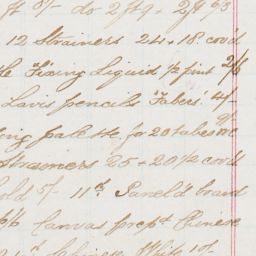 ft 8/- do 2ft9 - 2ft 6/3
12 Strainers 24 + 18 cov'd
"Fixing Liquid ½ pint 2/6
Lavis pencils "Fabers' 4/-
palette for 20 tubes 9/-
Strainers 25 + 20½ cov'd
5/- 11th Panel'd board
6/6 Canvas prep'd Chinese
Chinese White 10/-